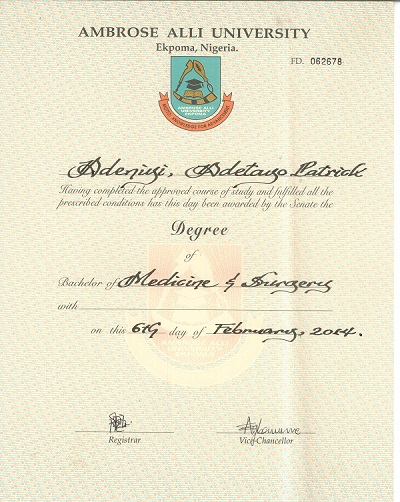 AMBROSE ALLI UNIVERSITY
Ekpoma, Nigeria.
FD. 062678
AMBROSE ALLI
UNIVERSITY
EKPOMA
KNOWLEDGE FOR ADVANCEMENT
Adeniyi, Adetayo Patrick
Having completed the approved course of study and fulfilled all the
prescribed conditions has this day been awarded by the Senate the
Degree
of
Bachelor of Medicine & Surgery
with
on this 6th day of February, 2014.
Registrar
Vice-Chancellor